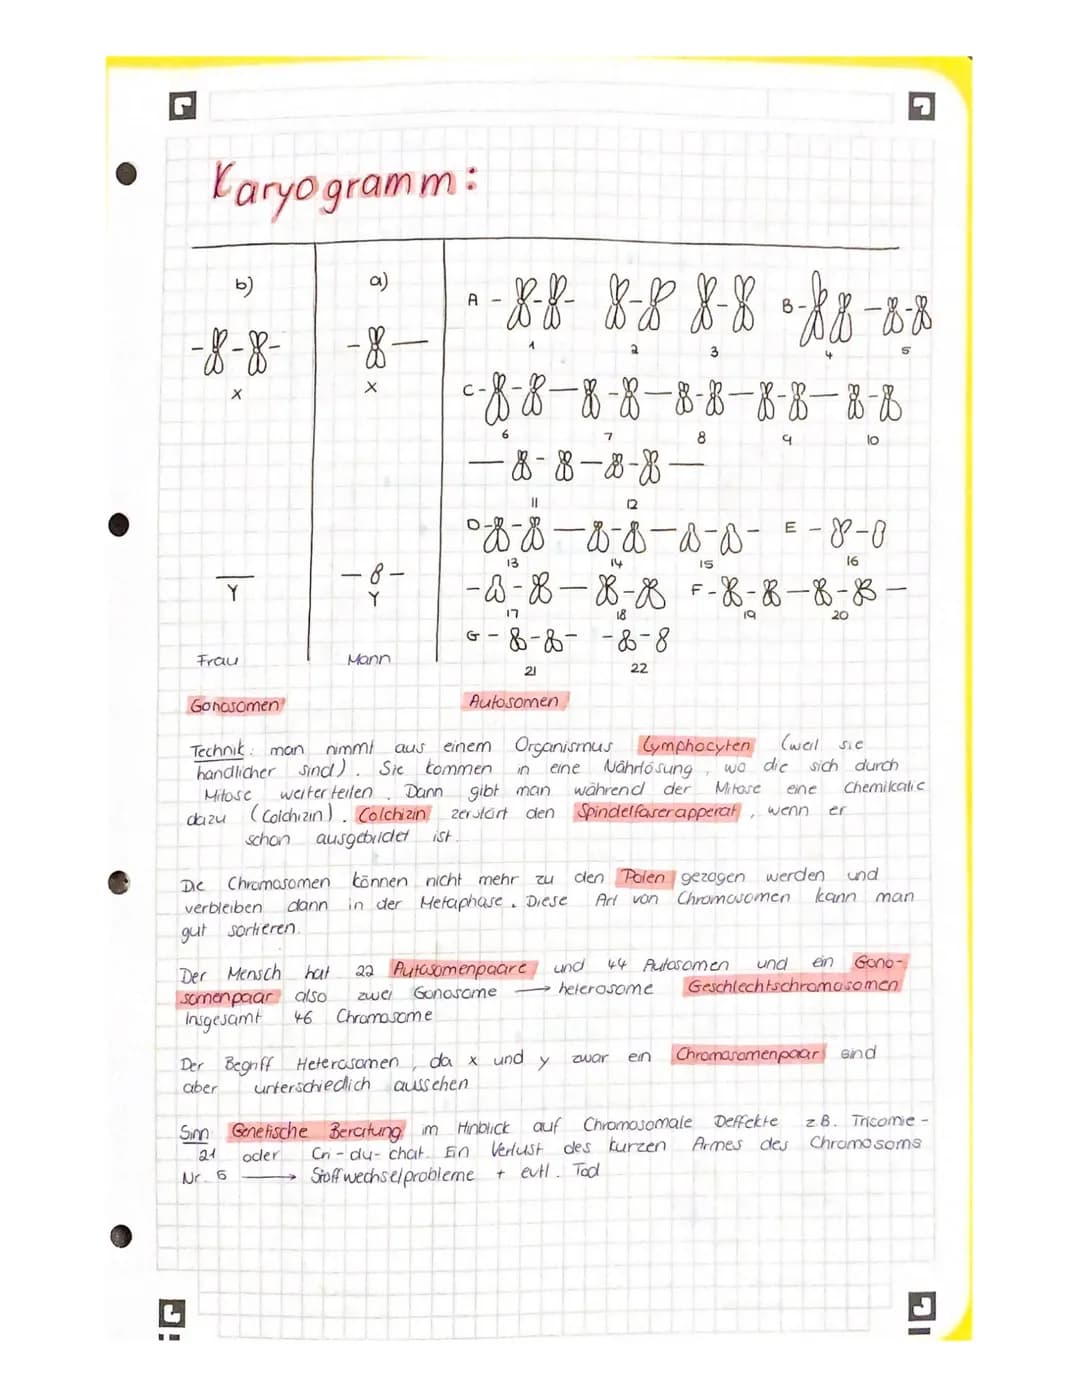 Karyogramm:
b)
a)
A
B
1
2
3
4
5
X
X
C
6
7
8
9
10
11
12
D
E
13
14
15
16
Y
Y
F
17
18
19
20
G
21
22
Frau
Mann
Gonosomen
Autosomen
Technik: man nimmt aus einem Organismus Lymphocyten (weil sie
handlicher sind). Sie kommen in eine Nährlösung, wo die sich durch
Mitose weiterteilen. Dann gibt man während der Mitose eine Chemikalie
dazu (Colchizin). Colchizin zerstört den Spindelfaserapperat, wenn er
schon ausgebildet ist.
Die Chromosomen können nicht mehr zu den Polen gezogen werden und
verbleiben dann in der Metaphase. Diese Art von Chromosomen kann man
gut sortieren.
Der Mensch hat 22 Autosomenpaare und 44 Autosomen und ein Gono-
somenpaar also zwei Gonosome → heterosome Geschlechtschromosomen
Insgesamt 46 Chromosome
Der Begriff Heterosomen, da x und y zwar ein Chromosomenpaar sind
aber unterschiedlich aussehen
Sinn Genetische Beratung im Hinblick auf Chromosomale Deffekte z.B. Tricomie-
21 oder Cri-du-chat. Ein Verlust des kurzen Armes des Chromosoms
Nr. 5 → Stoffwechselprobleme + evtl. Tod